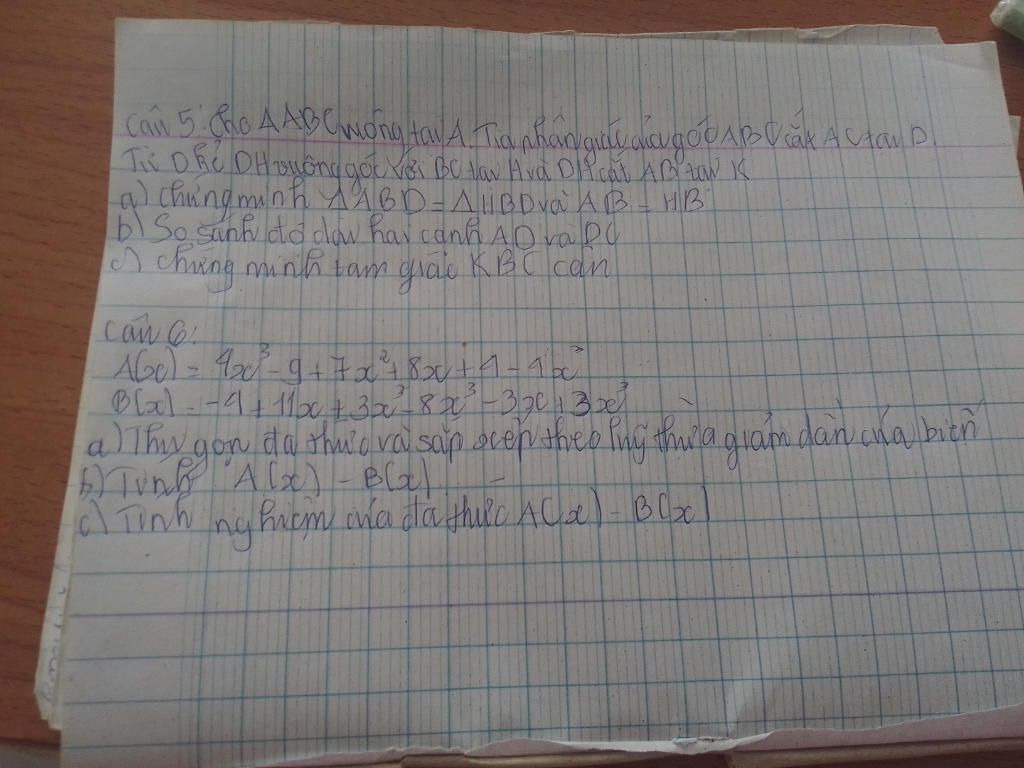 Câu 5: Cho ΔABC vuông tại A. Tia phân giác của góc ABC cắt AC tại D
Từ D kẻ DH vuông góc với BC tại H và DH cắt AB tại K
a) Chứng minh ΔABD = ΔHBD và AB = HB
b) So sánh độ dài hai cạnh AD và DC
c) Chứng minh tam giác KBC cân
Câu 6:
A(x) = 4x³ - 9 + 7x² + 8x + 4 - 4x³
B(x) = -4 + 11x + 3x³ - 8x³ - 3x + 3x³
a) Thu gọn đa thức và sắp xếp theo luỹ thừa giảm dần của biến
b) Tính A(x) - B(x)
c) Tính nghiệm của đa thức A(x) - B(x)